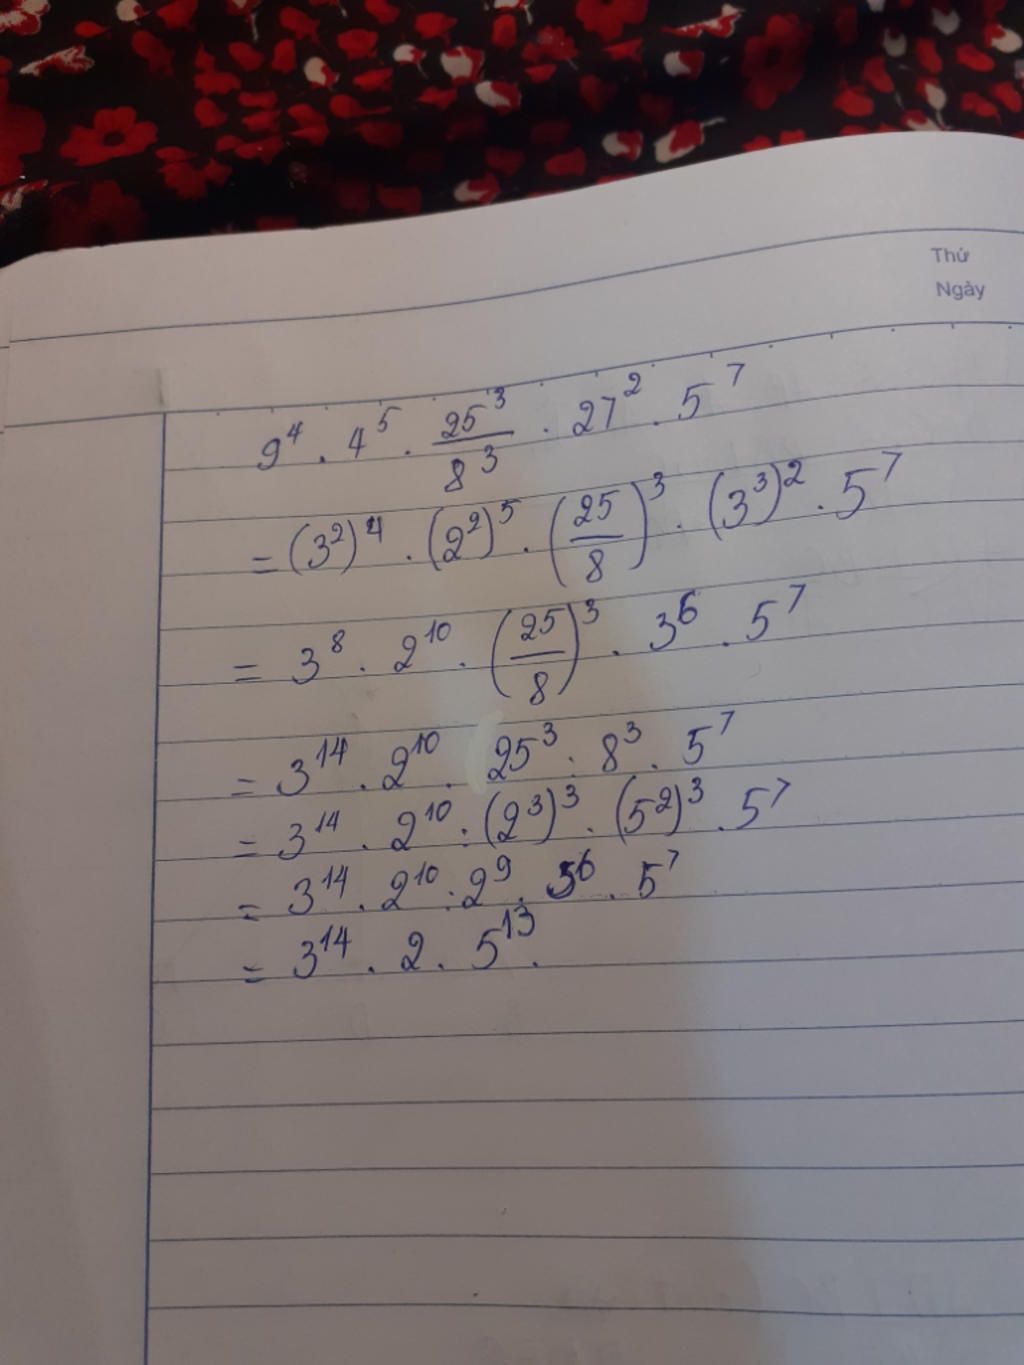 Thứ
Ngày
9⁴ . 4⁵ . 25³/8³ . 27² . 5⁷
= (3²)⁴ . (2²)⁵ . (25/8)³ . (3³)² . 5⁷
= 3⁸ . 2¹⁰ . (25/8)³ . 3⁶ . 5⁷
= 3¹⁴ . 2¹⁰ . 25³ : 8³ . 5⁷
= 3¹⁴ . 2¹⁰ : (2³)³ . (5²)³ . 5⁷
= 3¹⁴ . 2¹⁰ : 2⁹ . 5⁶ . 5⁷
= 3¹⁴ . 2 . 5¹³ .